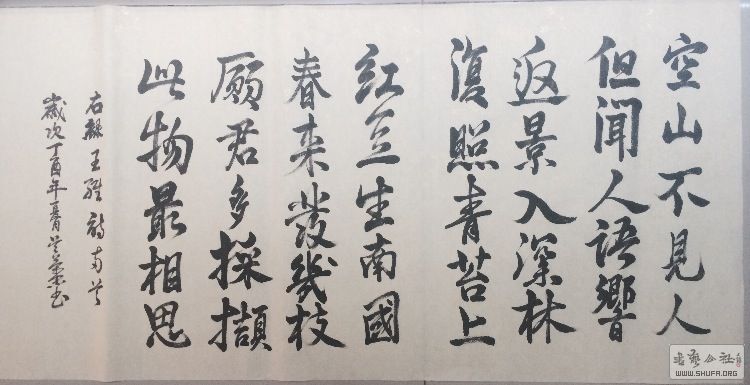 空山不見人
但聞人語響
返景入深林
復照青苔上
紅豆生南國
春来發幾枝
願君多採擷
此物最相思
右録王維詩兩首
歲次丁酉年
書法公社
WWW.SHUFA.ORG